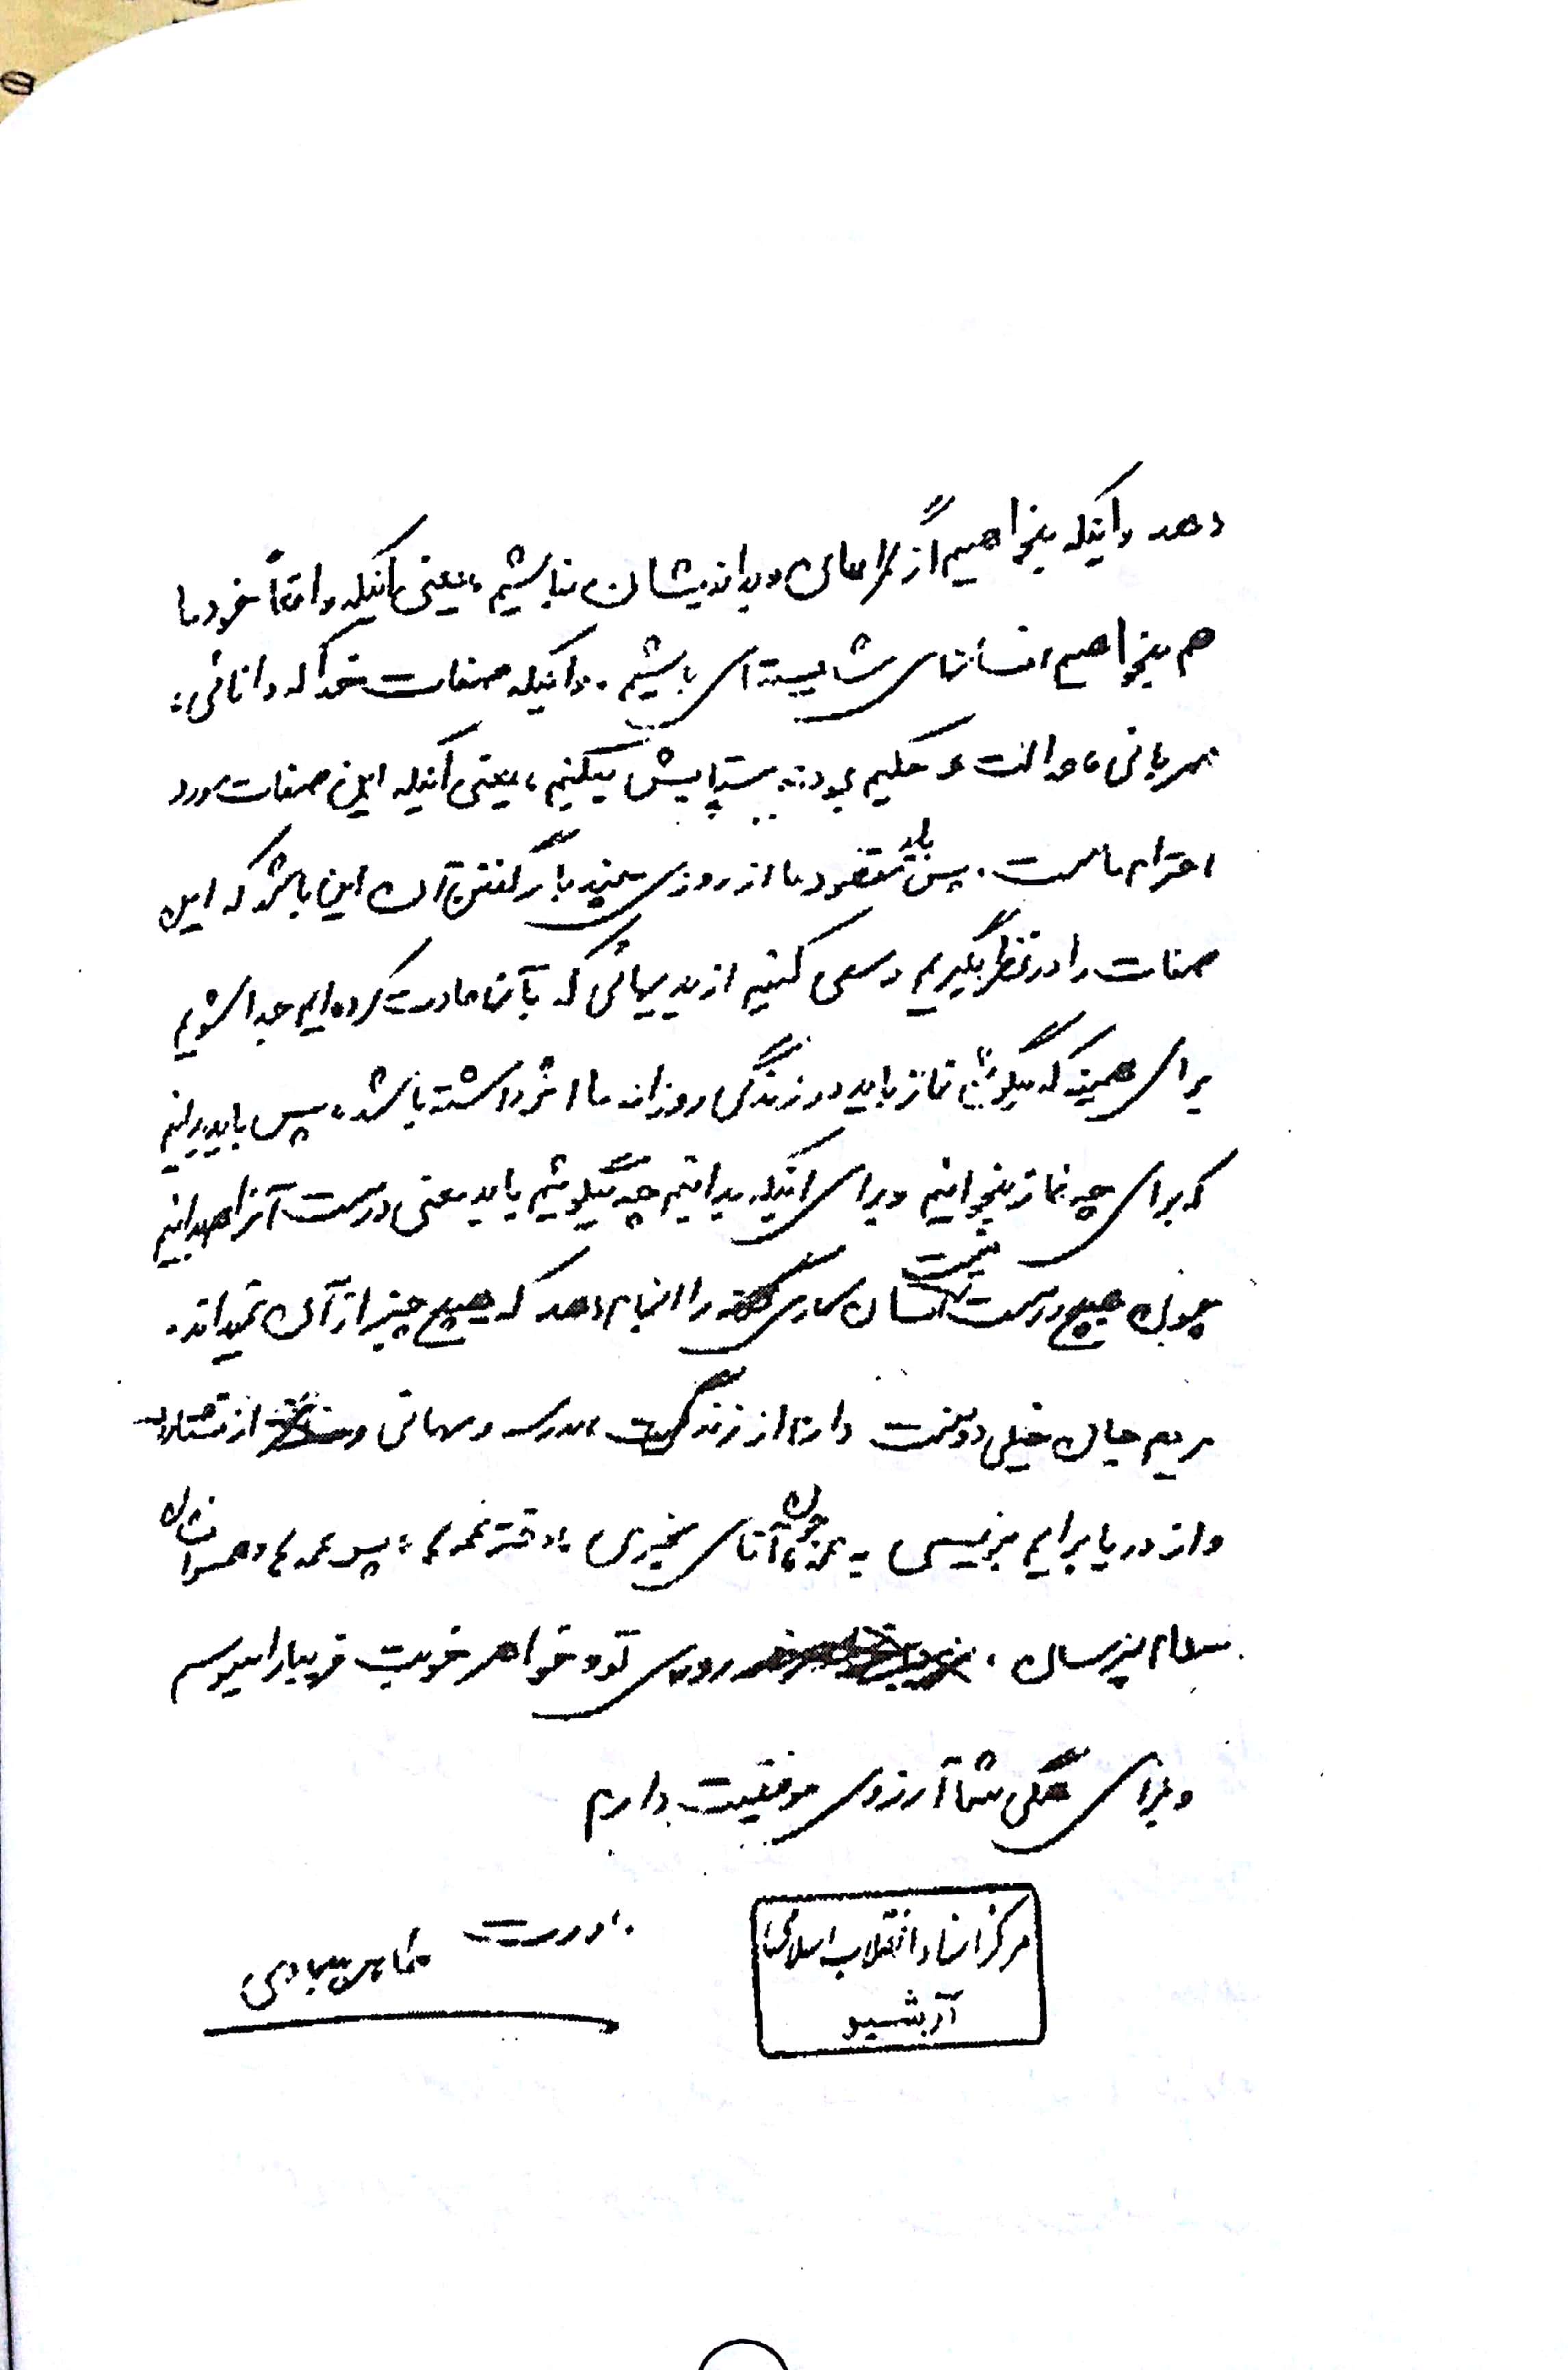 دهد و اینکه بخواهیم از گمراهان و بداندیشان نباشیم، یعنی اینکه واقعاً خود ما
هم بخواهیم انسانهای شایسته‌ای باشیم. و اینکه صفات خدا که دانائی،
مهربانی، عدالت و حکیم بودنه ستایش میکنیم، یعنی اینکه این صفات مورد
احترام ماست. پس باید مقصود ما از روزی چند بار گفتن آن این باشد که این
صفات را در نظر بگیریم و سعی کنیم از بدیهائی که بآن عادت کرده‌ایم جدا شویم
برای همینه که میگوئیم نماز باید در زندگی روزانه ما اثر داشته باشد، پس باید بدانیم
که برای چه نماز بخوانیم و برای اینکه بدانیم چه میگوئیم باید معنی درست آنرا هم بدانیم
چون هیچ درست نیست انسان کاری را انجام دهد که هیچ چیز از آن نمیداند.
مریم جان خیلی دوست دارم از زندگیت، مدرسه و مهمانی و از
و از دریا برایم بنویسی به عمه جون، آقای دختر عمه‌ها، پسر عمه‌ها و همسرانشان
سلام برسان. روی تو و خواهر خوبت فریبا را میبوسم
و برای همگی شما آرزوی موفقیت دارم
مادرت
مرکز اسناد انقلاب اسلامی
آرشیو